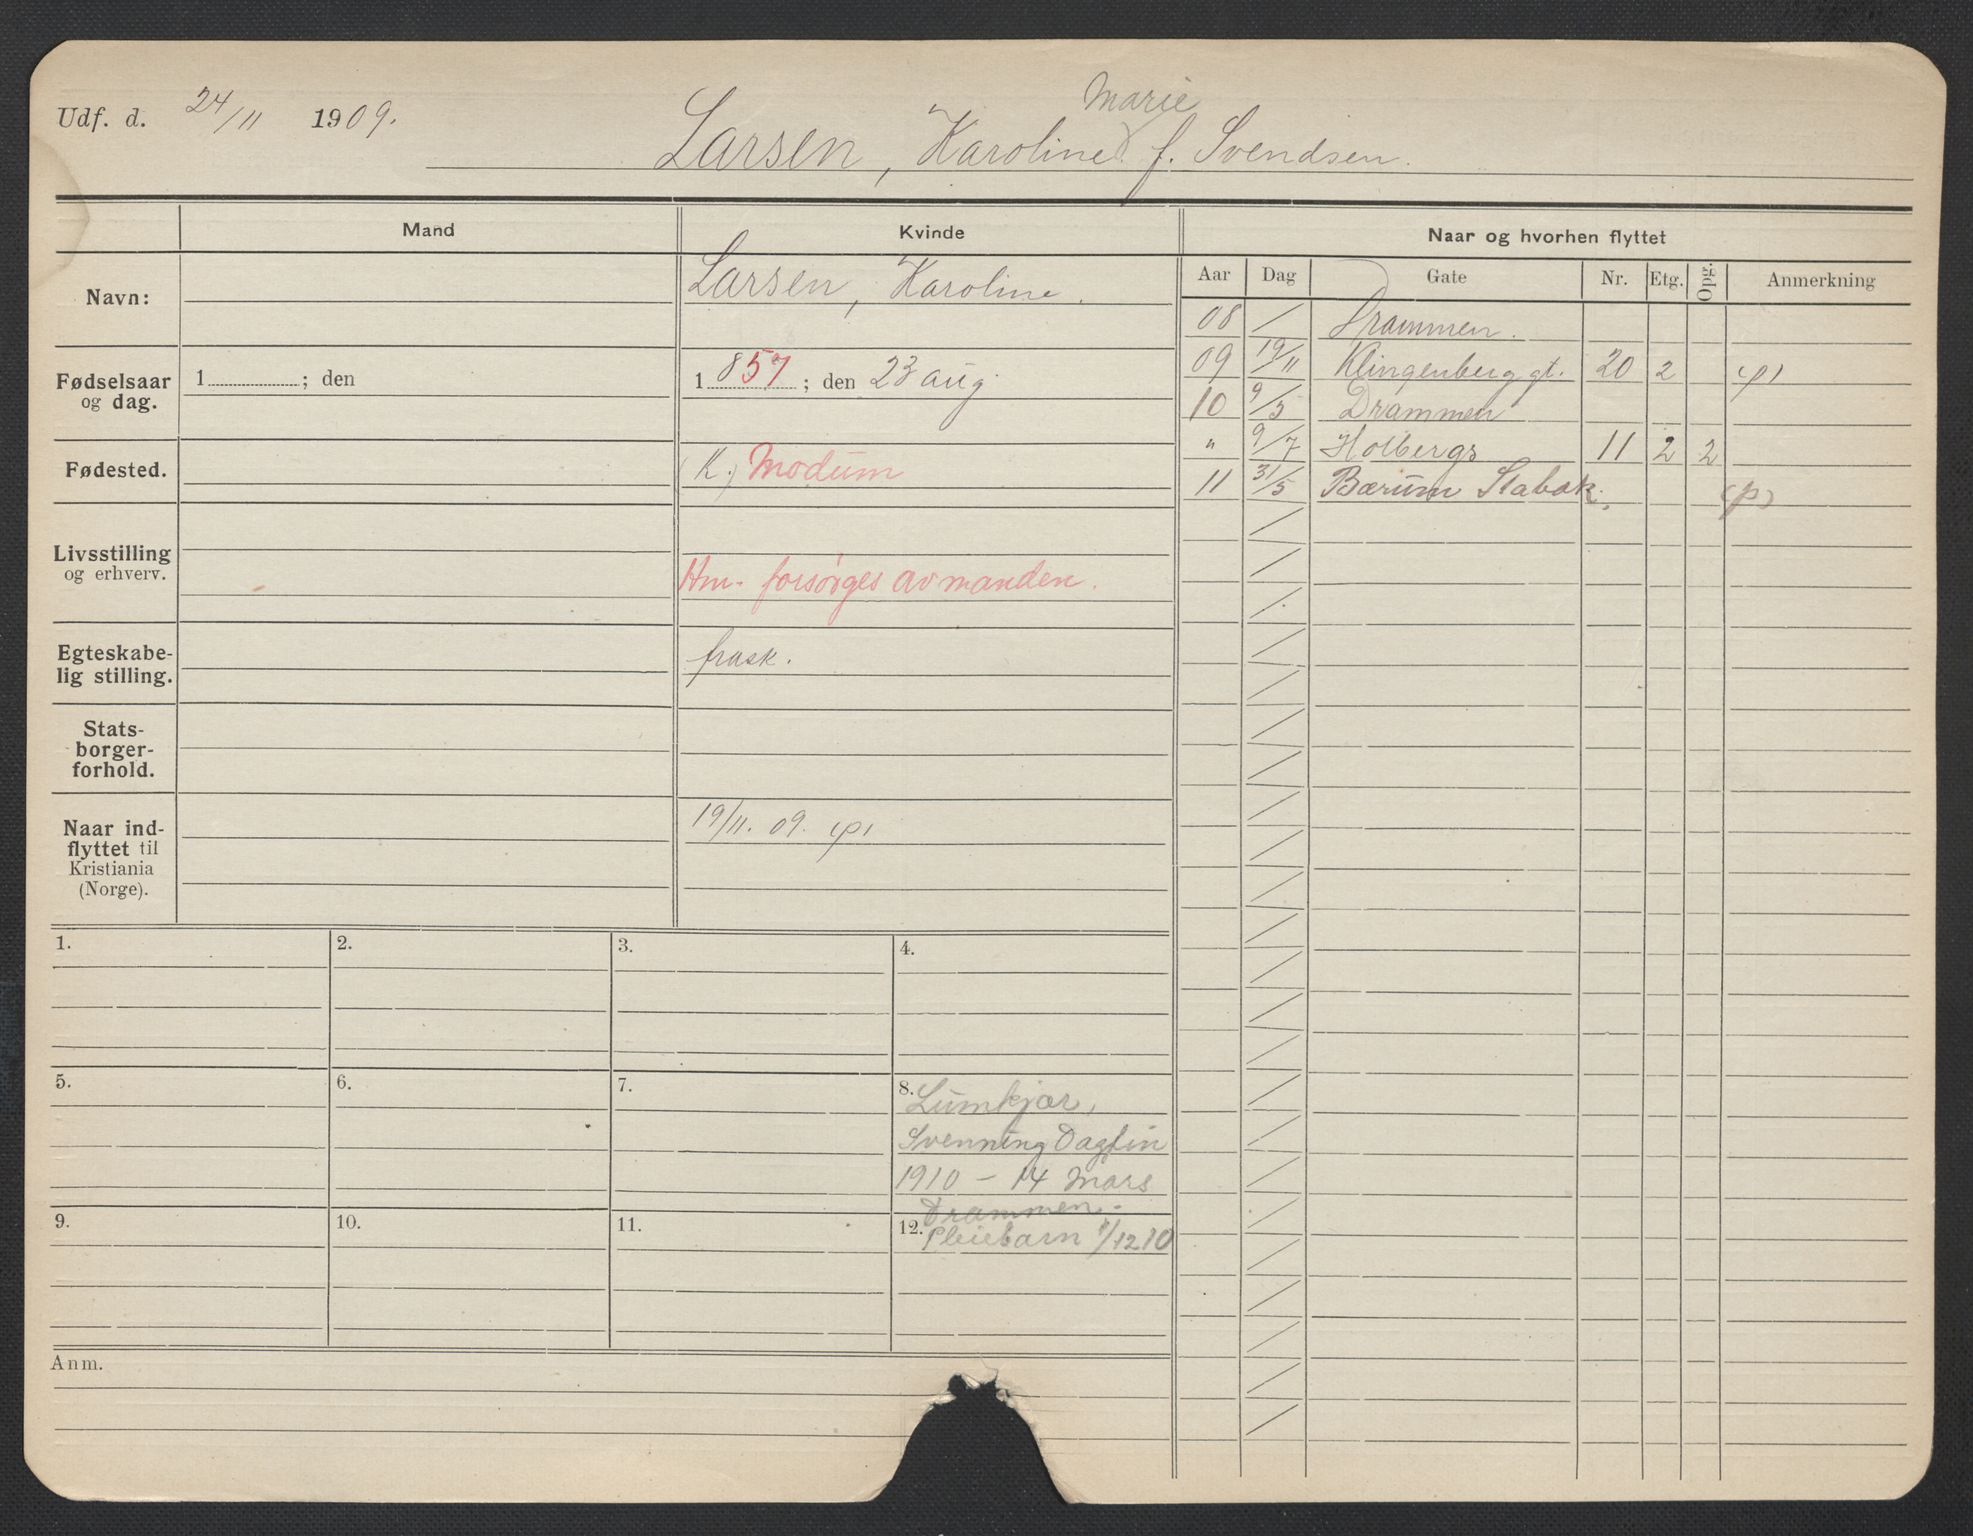 Marie
Udf. d. 24/11 1909.
Larsen, Karoline f. Svendsen.
Mand
Kvinde
Naar og hvorhen flyttet
Aar Dag Gate Nr. Etg. Opg. Anmerkning
Navn:
Larsen, Karoline.
Fødselsaar
og dag.
1 ; den
1857 ; den 23 aug
Fødested.
(K.) Modum
Livsstilling
og erhverv.
Hm. forsørges av manden.
Egteskabe-
lig stilling.
frask.
Stats-
borger-
forhold.
Naar ind-
flyttet til
Kristiania
(Norge).
19/11. 09. (p)
08 / Drammen.
09 19/11 Klingenberg gt. 20 2 (p)
10 9/5 Drammen
" 9/7 Holbergs 11 2 2
11 31/5 Bærum Stabak. (p)
1.
2.
3.
4.
5.
6.
7.
8. Lumkjær,
Svenning Dagfin
1910 - 14 Mars
Drammen.
9.
10.
11.
12. Pleiebarn 1/12 10
Anm.